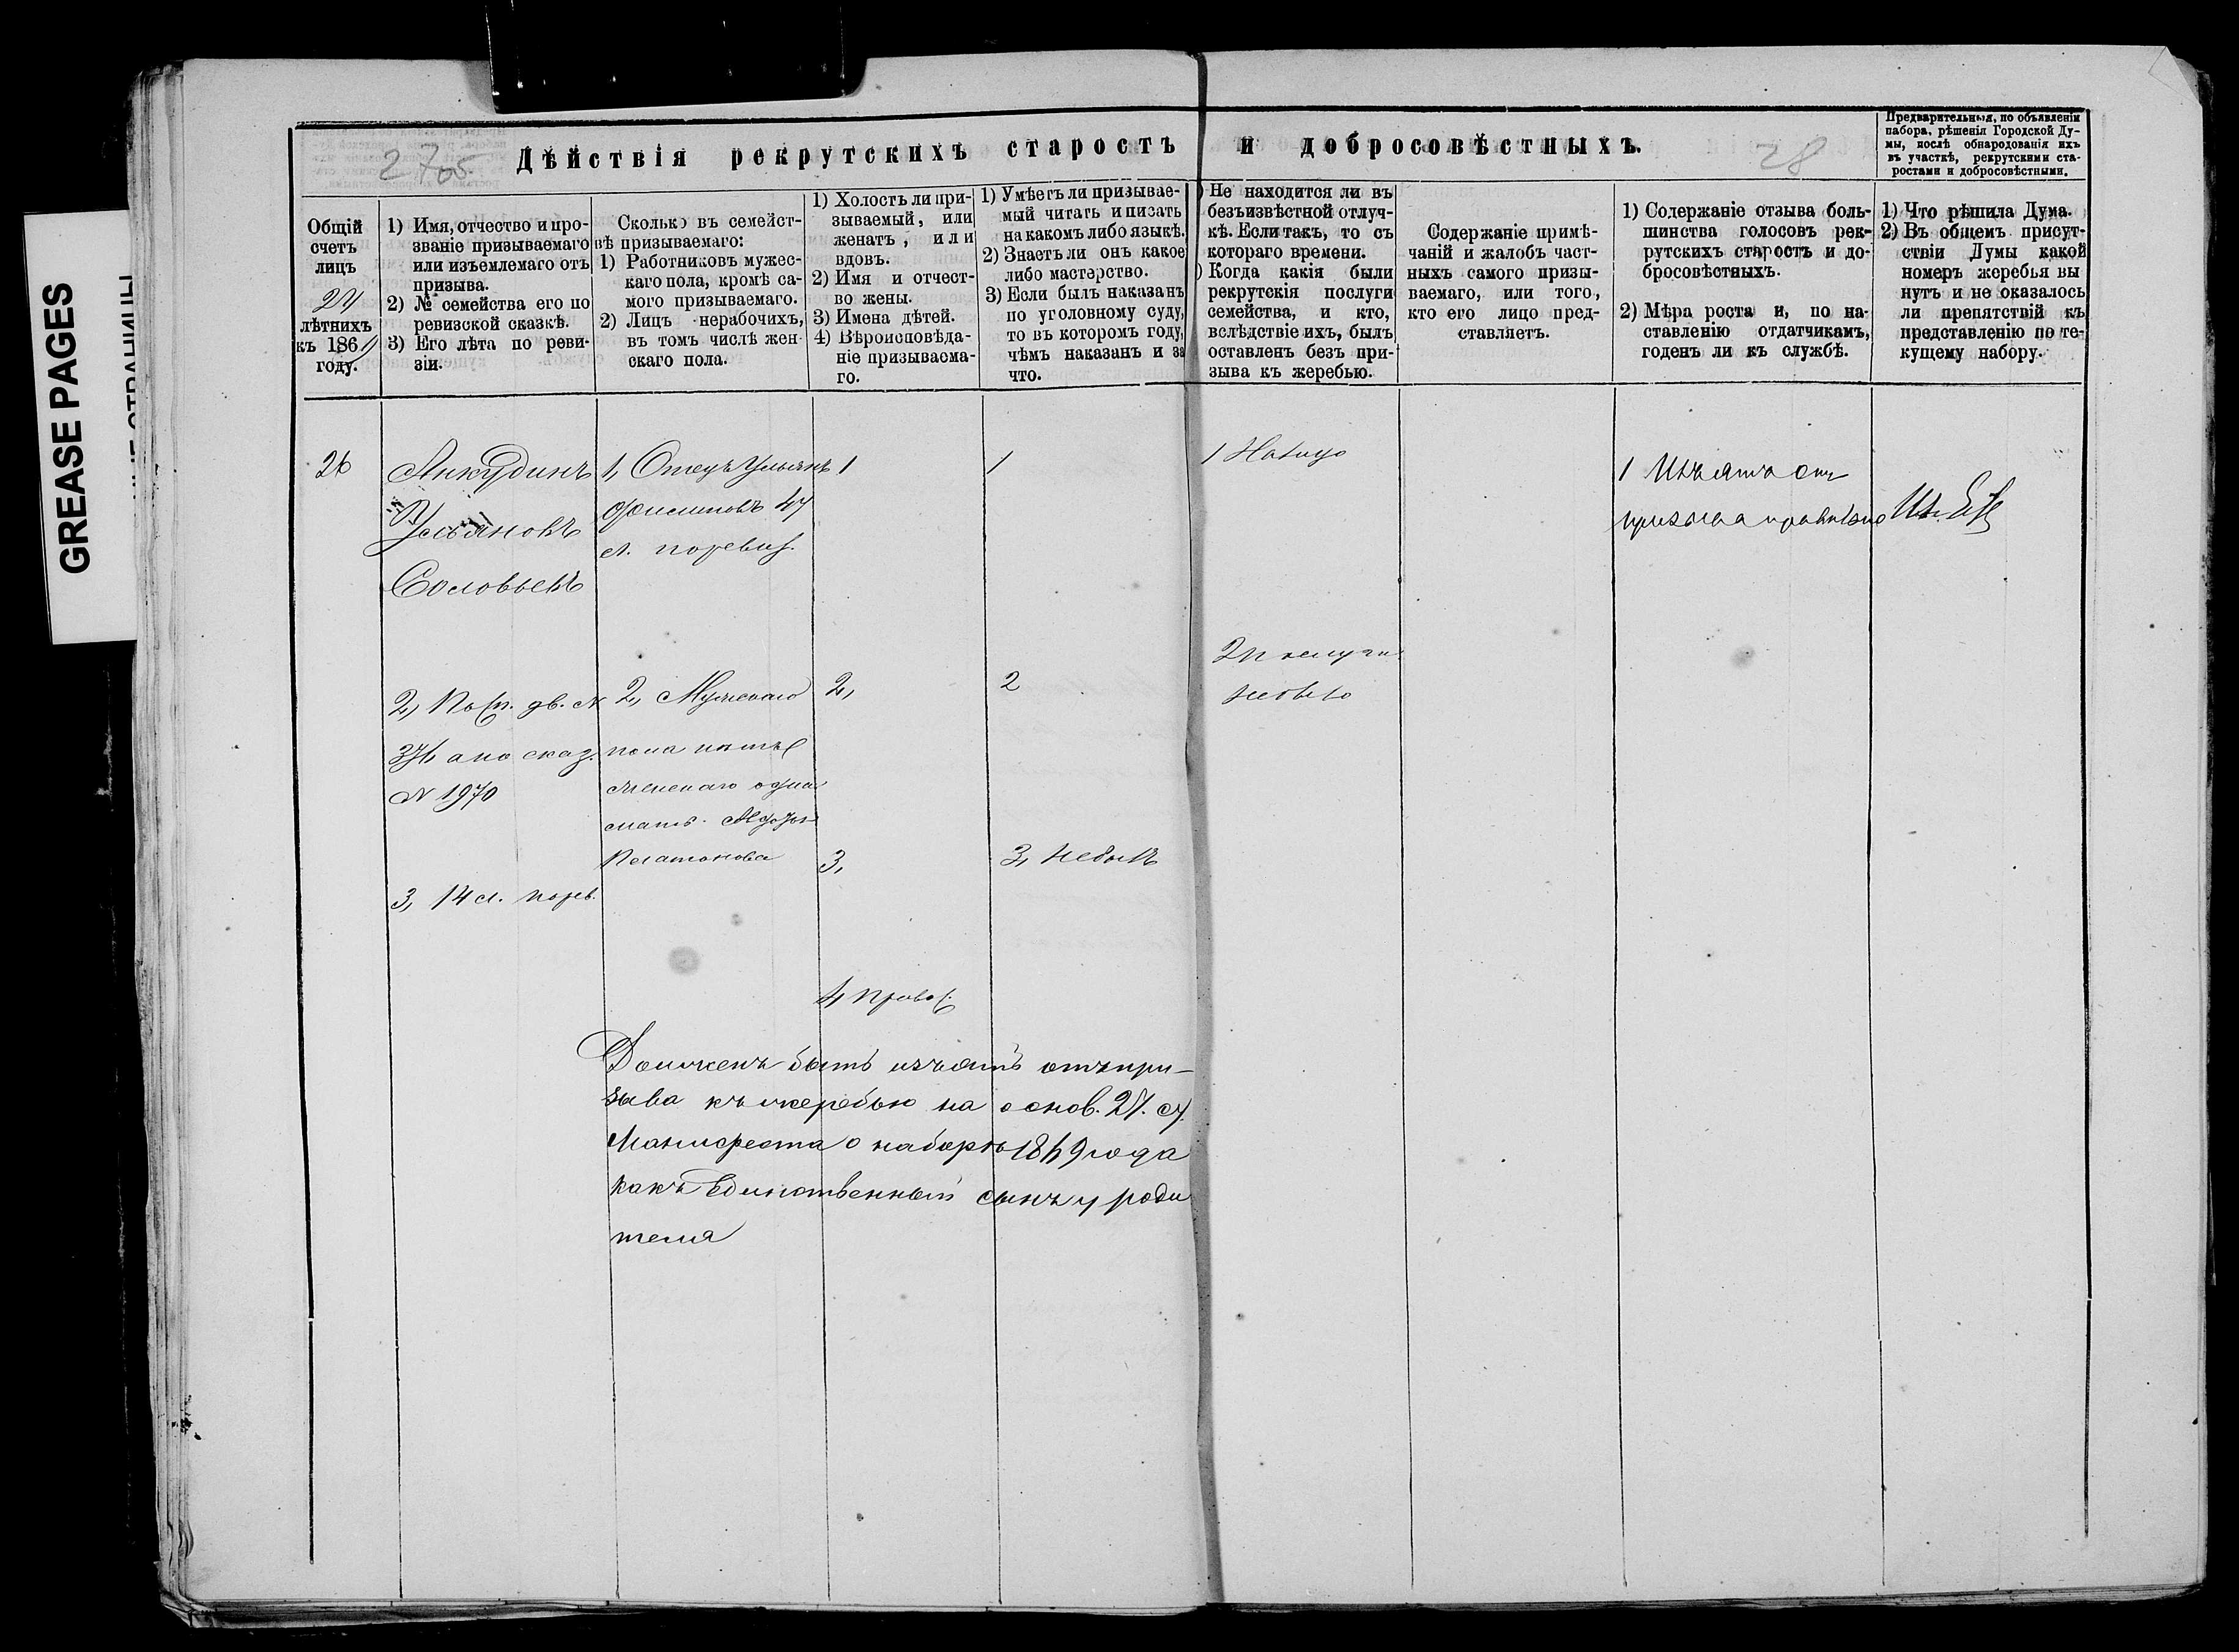 GREASE PAGES
27об.
Дѣйствія рекрутскихъ старостъ и добросовѣстныхъ.
28
Предварительныя, по объявленіи
набора, рѣшенія Городской Ду-
мы, послѣ обнародованія ихъ
въ участкѣ, рекрутскими ста-
ростами и добросовѣстными.
Общій
счетъ
лицъ
лѣтнихъ
къ 186
году.
1) Имя, отчество и про-
званіе призываемаго
или изъемлемаго отъ
призыва.
2) № семейства его по
ревизской сказкѣ.
3) Его лѣта по реви-
зіи.
Сколько въ семейст-
вѣ призываемаго:
1) Работниковъ мужес-
каго пола, кромѣ са-
мого призываемаго.
2) Лицъ нерабочихъ,
въ томъ числѣ жен-
скаго пола.
1) Холостъ ли при-
зываемый, или
женатъ, или
вдовъ.
2) Имя и отчест-
во жены.
3) Имена дѣтей.
4) Вѣроисповѣда-
ніе призываема-
го.
1) Умѣетъ ли призывае-
мый читать и писать
на какомъ либо языкѣ.
2) Знаетъ ли онъ какое
либо мастерство.
3) Если былъ наказанъ
по уголовному суду,
то въ которомъ году,
чѣмъ наказанъ и за
что.
) Не находится ли въ
безъизвѣстной отлуч-
кѣ. Если такъ, то съ
котораго времени.
) Когда какія были
рекрутскія послуги
семейства, и кто,
вслѣдствіе ихъ, былъ
оставленъ безъ при-
зыва къ жеребью.
Содержаніе примѣ-
чаній и жалобъ част-
ныхъ самого призы-
ваемаго, или того,
кто его лицо пред-
ставляетъ.
1) Содержаніе отзыва боль-
шинства голосовъ рек-
рутскихъ старостъ и до-
бросовѣстныхъ.
2) Мѣра роста и, по на-
ставленію отдатчикамъ,
годенъ ли къ службѣ.
1) Что рѣшила Дума.
2) Въ общемъ присут-
ствіи Думы какой
номеръ жеребья вы
нутъ и не оказалось
ли препятствій къ
представленію по те-
кущему набору.
26
Анкудинъ
Ульяновъ
Соловьевъ
2,
а по сказ.
№ 1970
3, 14 л. по рев.
1, Отецъ Ульянъ
47
л. по ревиз.
2, Мужескаго
пола нѣтъ
женскаго одна
мать
Платонова
1
2,
3,
4, Правос.
1
2
3, не былъ
1 На лицо
2
не было
1 Изъять отъ
призыва правильно
Долженъ быть изъятъ отъ при-
зыва къ жеребью на основ. 21. ст.
Манифеста о наборѣ 1869 года
какъ единственный сынъ у роди
теля